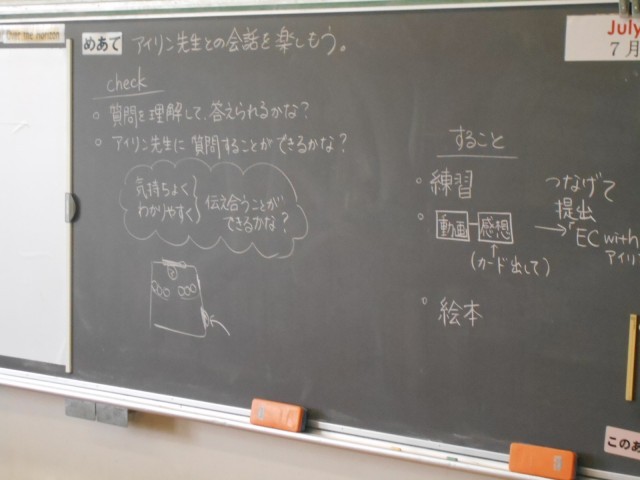 Over the Horizon
めあて アイリン先生との会話を楽しもう。
July
7月
check
○ 質問を理解して、答えられるかな?
○ アイリン先生に質問することができるかな?
気持ちよく
わかりやすく
伝え合うことが
できるかな?
すること
○ 練習
○ 動画 - 感想
↑
(カード出して)
つなげて
提出
→「EC with
アイリ
○ 絵本
このあ